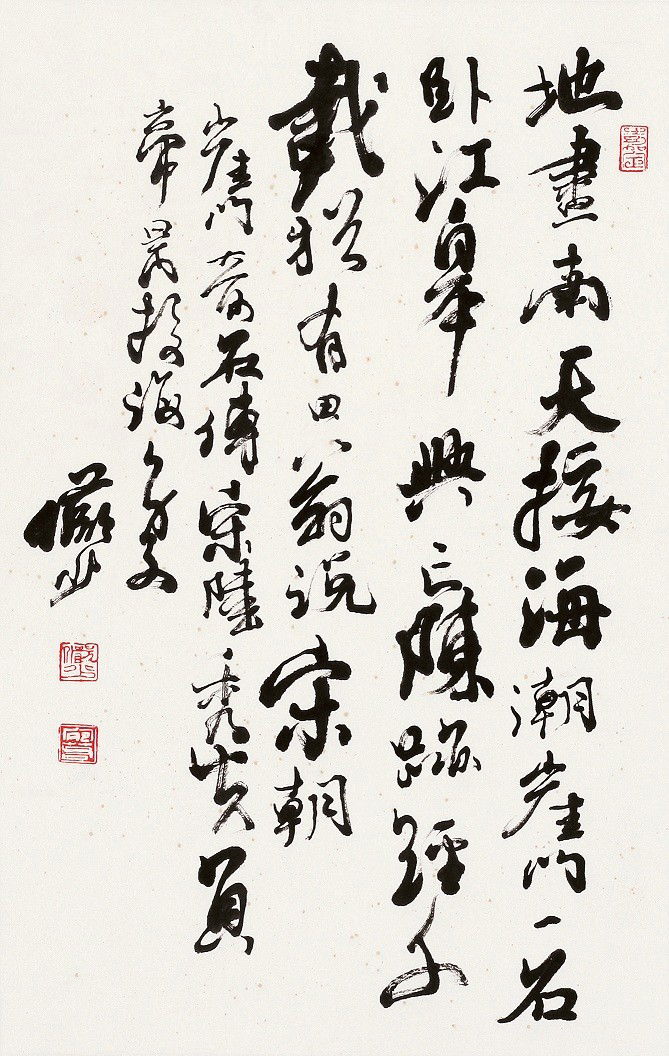 地盡南天接海潮崖門一石
卧江皋興亡陳跡經千
載猶有田翁説宋朝
崖門奇石傳宋陸秀夫負
帝昺投海
儼少